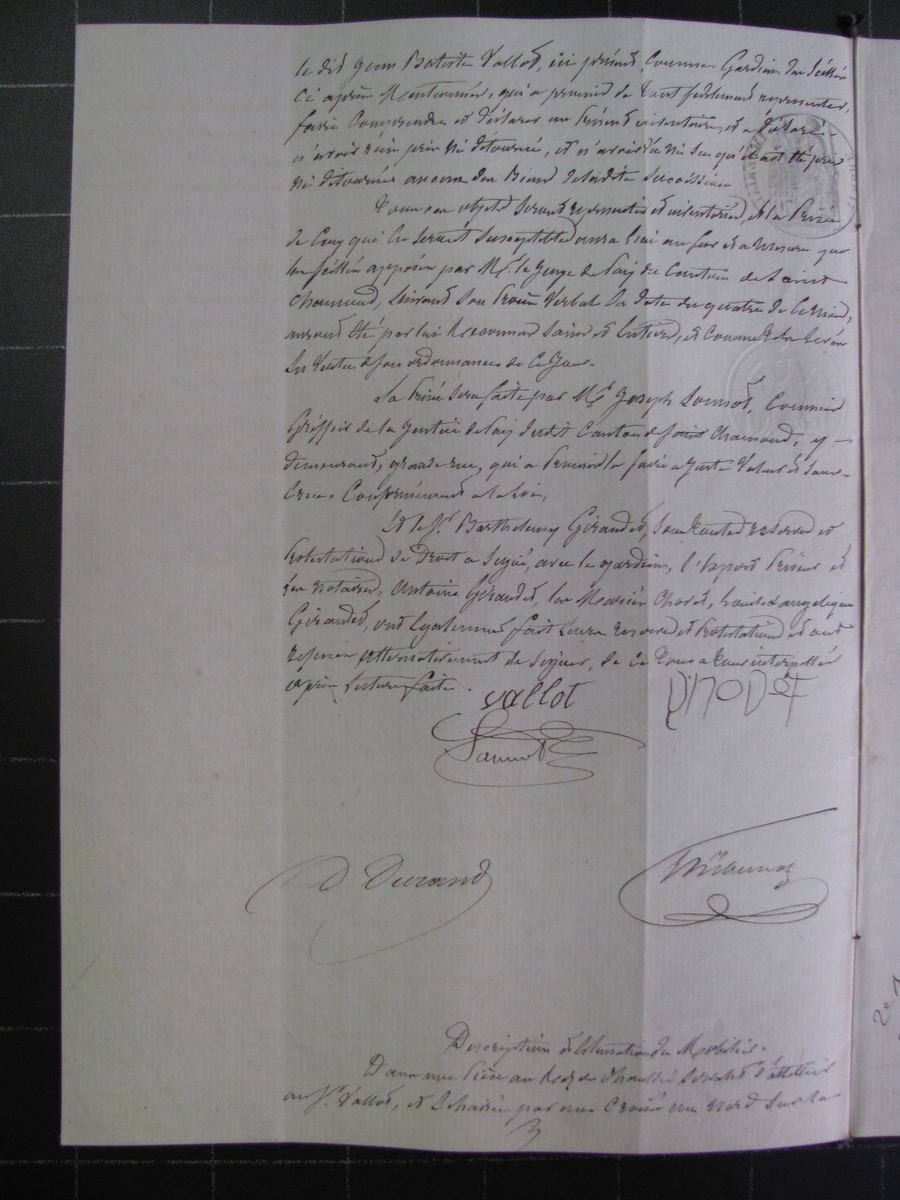 le dit Jean Batiste Vallot, ici présent, Comme Gardien des Scellés
Ci après Mentionnés, qui a promis de tout fidèlement représenter,
faire Comprendre et déclarer au présent inventaire, et a déclaré
n'avoir rien pris ni détourné, et n'avoir vu ni su qu'il ait été pris
ni détourné aucun des Biens de ladite Succession
Tous ces objets seront représentés et inventoriés, et la Prisée
de Ceux qui en seront Susceptibles aura lieu au fur et a mesure que
les Scellés apposés par Mr. le Juge de Paix du Canton de Saint
Chamond, Suivant Son Procès Verbal en date du quatre de Ce mois,
auront été par lui Reconnus Sains et Entiers, et Comme tels levés
En Vertu de son ordonnance de Ce Jour.
La Prisée sera faite par Me. Joseph Commis
Greffier de la Justice de Paix dudit Canton de Saint Chamond, y
demeurant, grande rue, qui a Promis la faire a Juste Valeur et Sans
Crue Conformément a la loi,
Et le Sr. Barthélemy Girandet, Sous toutes réserves et
Protestations de Droit a Signé, avec le gardien, l'Expert Priseur et
les notaires, Antoine Girandet, les Mariés Chorel, Louise Angélique
Girandet, ont également fait leurs réserves et Protestations et ont
de Signer, de Ce Tous a Tour interpellés
après Lecture faite.
Vallot
D Durand
Description et Estimation du Mobilier.
Dans une Pièce au Rez de Chaussée Servant d'attelier
au Sr. Vallot, et Eclairée par une Croisée au nord Sur la